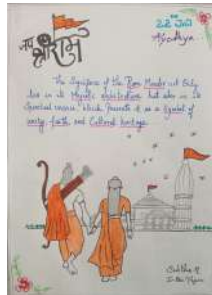 जय श्री राम
22 Jan
Ayodhya...
The Significance of the Ram Mandir not only
lies in its Majestic architecture but also in its
Spiritual essence, which Presents it as a symbol of
unity, faith and Cultural heritage.